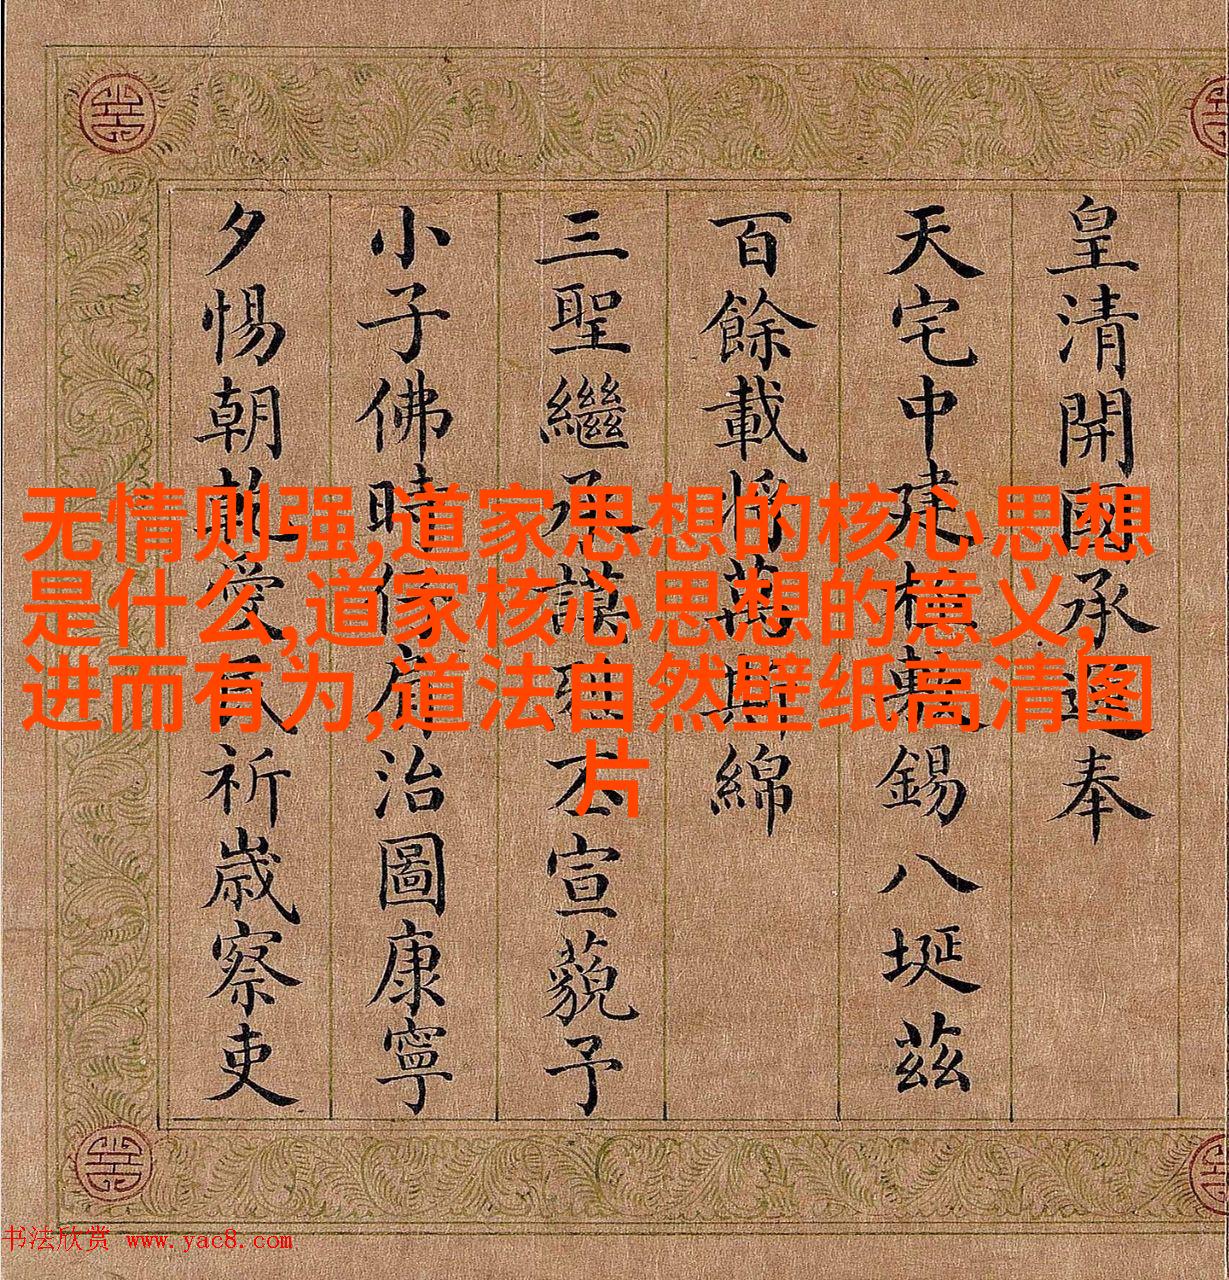 无情则强,道家思想的核心思想
是什么,道家核心思想的意义,
进而有为,道法自然壁纸高清图
片
皇清開國承奉
天宅中建極錫八埏茲
百餘載將萬斯綿
三聖繼承謨丕宣藐予
小子佛時仔肩治圖康寧
夕惕朝乾愛民祈歲察吏
书法欣赏 www.yac8.com